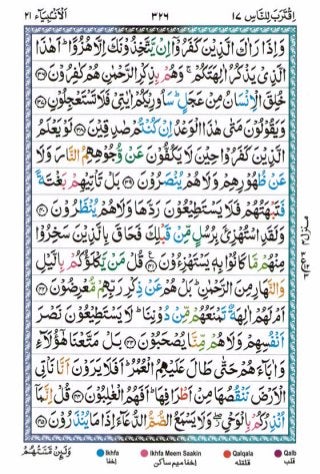 اقترب للناس ١٧
٣٢٦
الانبياء ٢١
وَاِذَا رَاٰكَ الَّذِيْنَ كَفَرُوْۤا اِنْ يَّتَّخِذُوْنَكَ اِلَّا هُزُوًا ؕ اَهٰذَا
الَّذِيْ يَذْكُرُ اٰلِهَتَكُمْ ۚ وَهُمْ بِذِكْرِ الرَّحْمٰنِ هُمْ كٰفِرُوْنَ ﴿۳۶﴾
خُلِقَ الْاِنْسَانُ مِنْ عَجَلٍ ؕ سَاُورِيْكُمْ اٰيٰتِيْ فَلَا تَسْتَعْجِلُوْنِ ﴿۳۷﴾
وَيَقُوْلُوْنَ مَتٰى هٰذَا الْوَعْدُ اِنْ كُنْتُمْ صٰدِقِيْنَ ﴿۳۸﴾ لَوْ يَعْلَمُ
الَّذِيْنَ كَفَرُوْا حِيْنَ لَا يَكُفُّوْنَ عَنْ وُّجُوْهِهِمُ النَّارَ وَلَا
عَنْ ظُهُوْرِهِمْ وَلَا هُمْ يُنْصَرُوْنَ ﴿۳۹﴾ بَلْ تَاْتِيْهِمْ بَغْتَةً
فَتَبْهَتُهُمْ فَلَا يَسْتَطِيْعُوْنَ رَدَّهَا وَلَا هُمْ يُنْظَرُوْنَ ﴿۴۰﴾
وَلَقَدِ اسْتُهْزِئَ بِرُسُلٍ مِّنْ قَبْلِكَ فَحَاقَ بِالَّذِيْنَ سَخِرُوْا
مِنْهُمْ مَّا كَانُوْا بِهٖ يَسْتَهْزِءُوْنَ ﴿۴۱﴾ قُلْ مَنْ يَّكْلَؤُكُمْ بِالَّيْلِ
وَالنَّهَارِ مِنَ الرَّحْمٰنِ ؕ بَلْ هُمْ عَنْ ذِكْرِ رَبِّهِمْ مُّعْرِضُوْنَ ﴿۴۲﴾
اَمْ لَهُمْ اٰلِهَةٌ تَمْنَعُهُمْ مِّنْ دُوْنِنَا ؕ لَا يَسْتَطِيْعُوْنَ نَصْرَ
اَنْفُسِهِمْ وَلَا هُمْ مِّنَّا يُصْحَبُوْنَ ﴿۴۳﴾ بَلْ مَتَّعْنَا هٰۤؤُلَآءِ
وَاٰبَآءَهُمْ حَتّٰى طَالَ عَلَيْهِمُ الْعُمُرُ ؕ اَفَلَا يَرَوْنَ اَنَّا نَاْتِي
الْاَرْضَ نَنْقُصُهَا مِنْ اَطْرَافِهَا ؕ اَفَهُمُ الْغٰلِبُوْنَ ﴿۴۴﴾ قُلْ اِنَّمَاۤ
اُنْذِرُكُمْ بِالْوَحْيِ ۖ وَلَا يَسْمَعُ الصُّمُّ الدُّعَآءَ اِذَا مَا يُنْذَرُوْنَ ﴿۴۵﴾
وَلَئِنْ مَّسَّتْهُمْ
Ikhfa Ikhfa Meem Saakin Qalqala Qalb
اخفا اخفا میم ساکن قلقلہ قلب